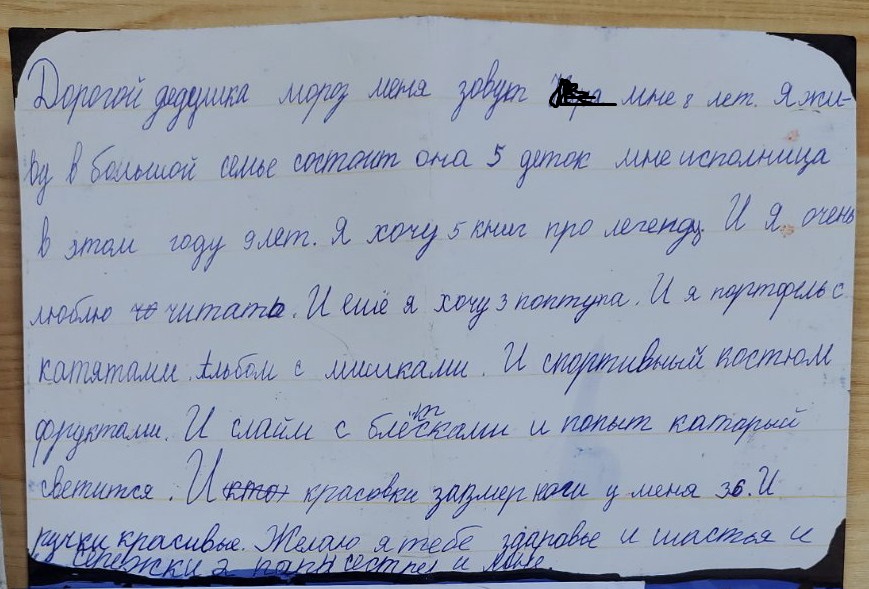 Дорогой дедушка мороз меня зовут мне 8 лет. Я жи-
ву в большой семье состоит она 5 деток мне исполница
в этом году 9 лет. Я хочу 5 книг про легенды. И Я очень
люблю читать. И ещё я хочу 3 поптупа. И я портфель с
катятами. Альбом с мишками. И спортивный костюм
фруктами. И слайм с блёсками и попыт катарый
светится. И красовки зазмер ноги у меня 36. И
ручки красивые. Желаю я тебе здаровье и шастья и
Серёжки 2 пары сестре и мне.